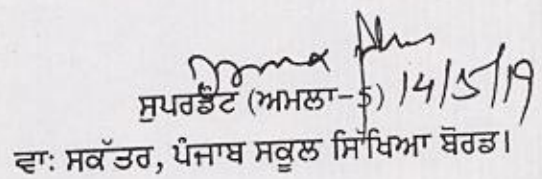 ਸੁਪਰਡੈਂਟ (ਅਮਲਾ-5) 14/5/19
ਵਾ: ਸਕੱਤਰ, ਪੰਜਾਬ ਸਕੂਲ ਸਿੱਖਿਆ ਬੋਰਡ।